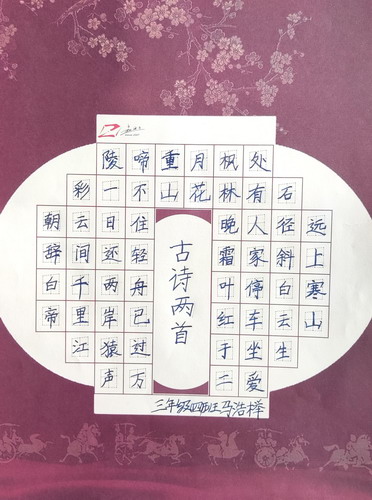 古诗两首
远上寒山
石径斜白云生
处有人家停车坐爱
枫林晚霜叶红于二
月花
朝辞白帝
彩云间千里江
陵一日还两岸猿声
啼不住轻舟已过万
重山
三年级四班马浩